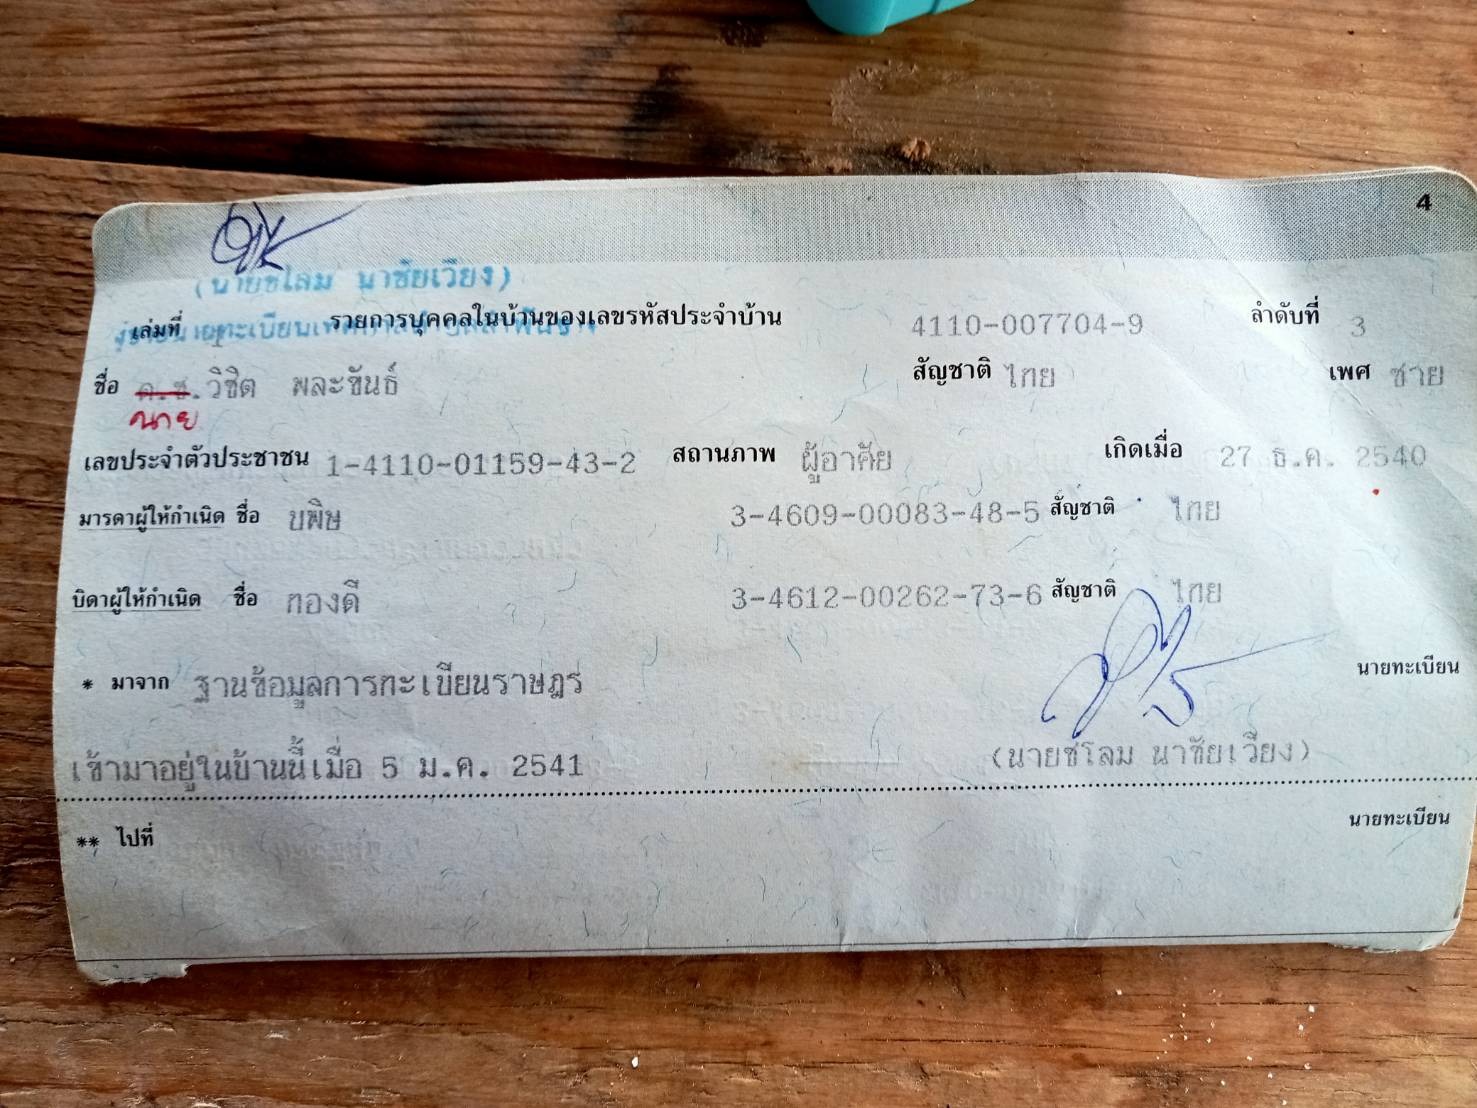 4
(นายชโลม นาชัยเวียง)
เล่มที่ รายการบุคคลในบ้านของเลขรหัสประจำบ้าน 4110-007704-9 ลำดับที่ 3
ชื่อ ด.ช.วิชิต พละขันธ์ สัญชาติ ไทย เพศ ชาย
นาย
เลขประจำตัวประชาชน 1-4110-01159-43-2 สถานภาพ ผู้อาศัย เกิดเมื่อ 27 ธ.ค. 2540
มารดาผู้ให้กำเนิด ชื่อ บพิษ 3-4609-00083-48-5 สัญชาติ ไทย
บิดาผู้ให้กำเนิด ชื่อ ทองดี 3-4612-00262-73-6 สัญชาติ ไทย
* มาจาก ฐานข้อมูลการทะเบียนราษฎร นายทะเบียน
เข้ามาอยู่ในบ้านนี้เมื่อ 5 ม.ค. 2541 (นายชโลม นาชัยเวียง)
** ไปที่ นายทะเบียน